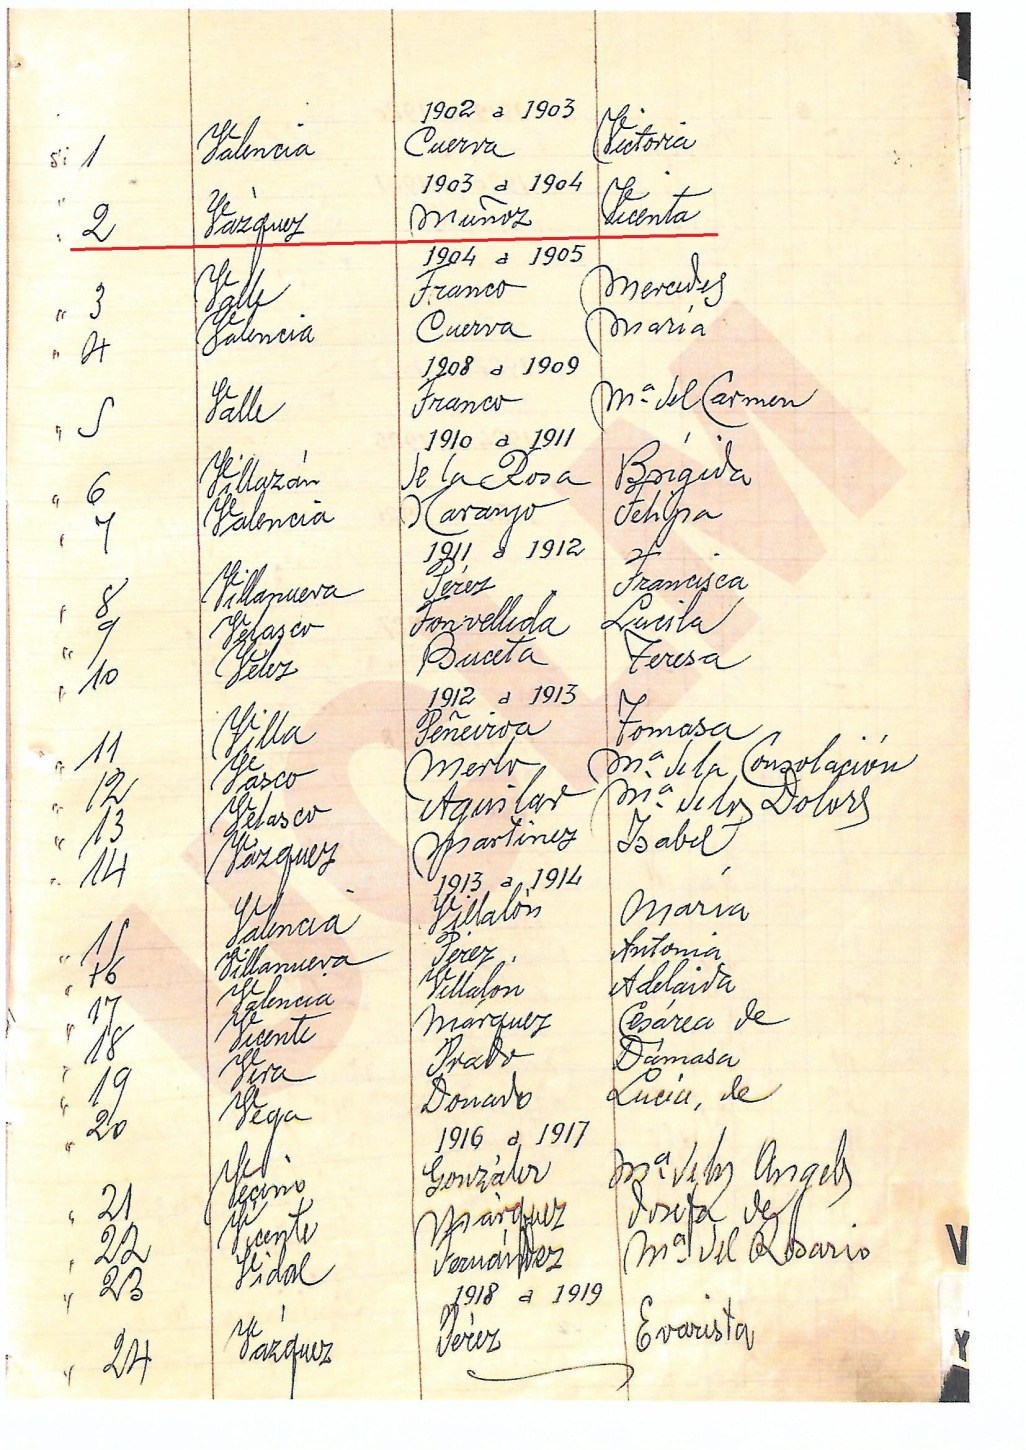 1902 a 1903
si 1 Valencia Cuerva Victoria
1903 a 1904
" 2 Vázquez Muñoz Vicenta
1904 a 1905
" 3 Valle Franco Mercedes
" 4 Valencia Cuerva María
1908 a 1909
" 5 Valle Franco Mª del Carmen
1910 a 1911
" 6 Villazán de la Rosa Brígida
" 7 Valencia Naranjo Felipa
1911 a 1912
" 8 Villanueva Pérez Francisca
" 9 Velasco Fonvellida Lucila
" 10 Vélez Buceta Teresa
1912 a 1913
" 11 Villa Peñeiroa Tomasa
" 12 Vasco Merlo Mª de la Consolación
" 13 Velasco Aguilar Mª de los Dolores
" 14 Vázquez Martinez Isabel
1913 a 1914
" 15 Valencia Villalón María
" 16 Villanueva Pérez Antonia
" 17 Valencia Villalón Adelaida
" 18 Vicente Márquez Cesárea de
" 19 Vera Prado Dámasa
" 20 Vega Donado Lucía, de
1916 a 1917
" 21 Vecino González Mª de los Angeles
" 22 Vicente Márquez Josefa de
V
" 23 Vidal Fernández Mª del Rosario
1918 a 1919
" 24 Vázquez Pérez Evarista
Y